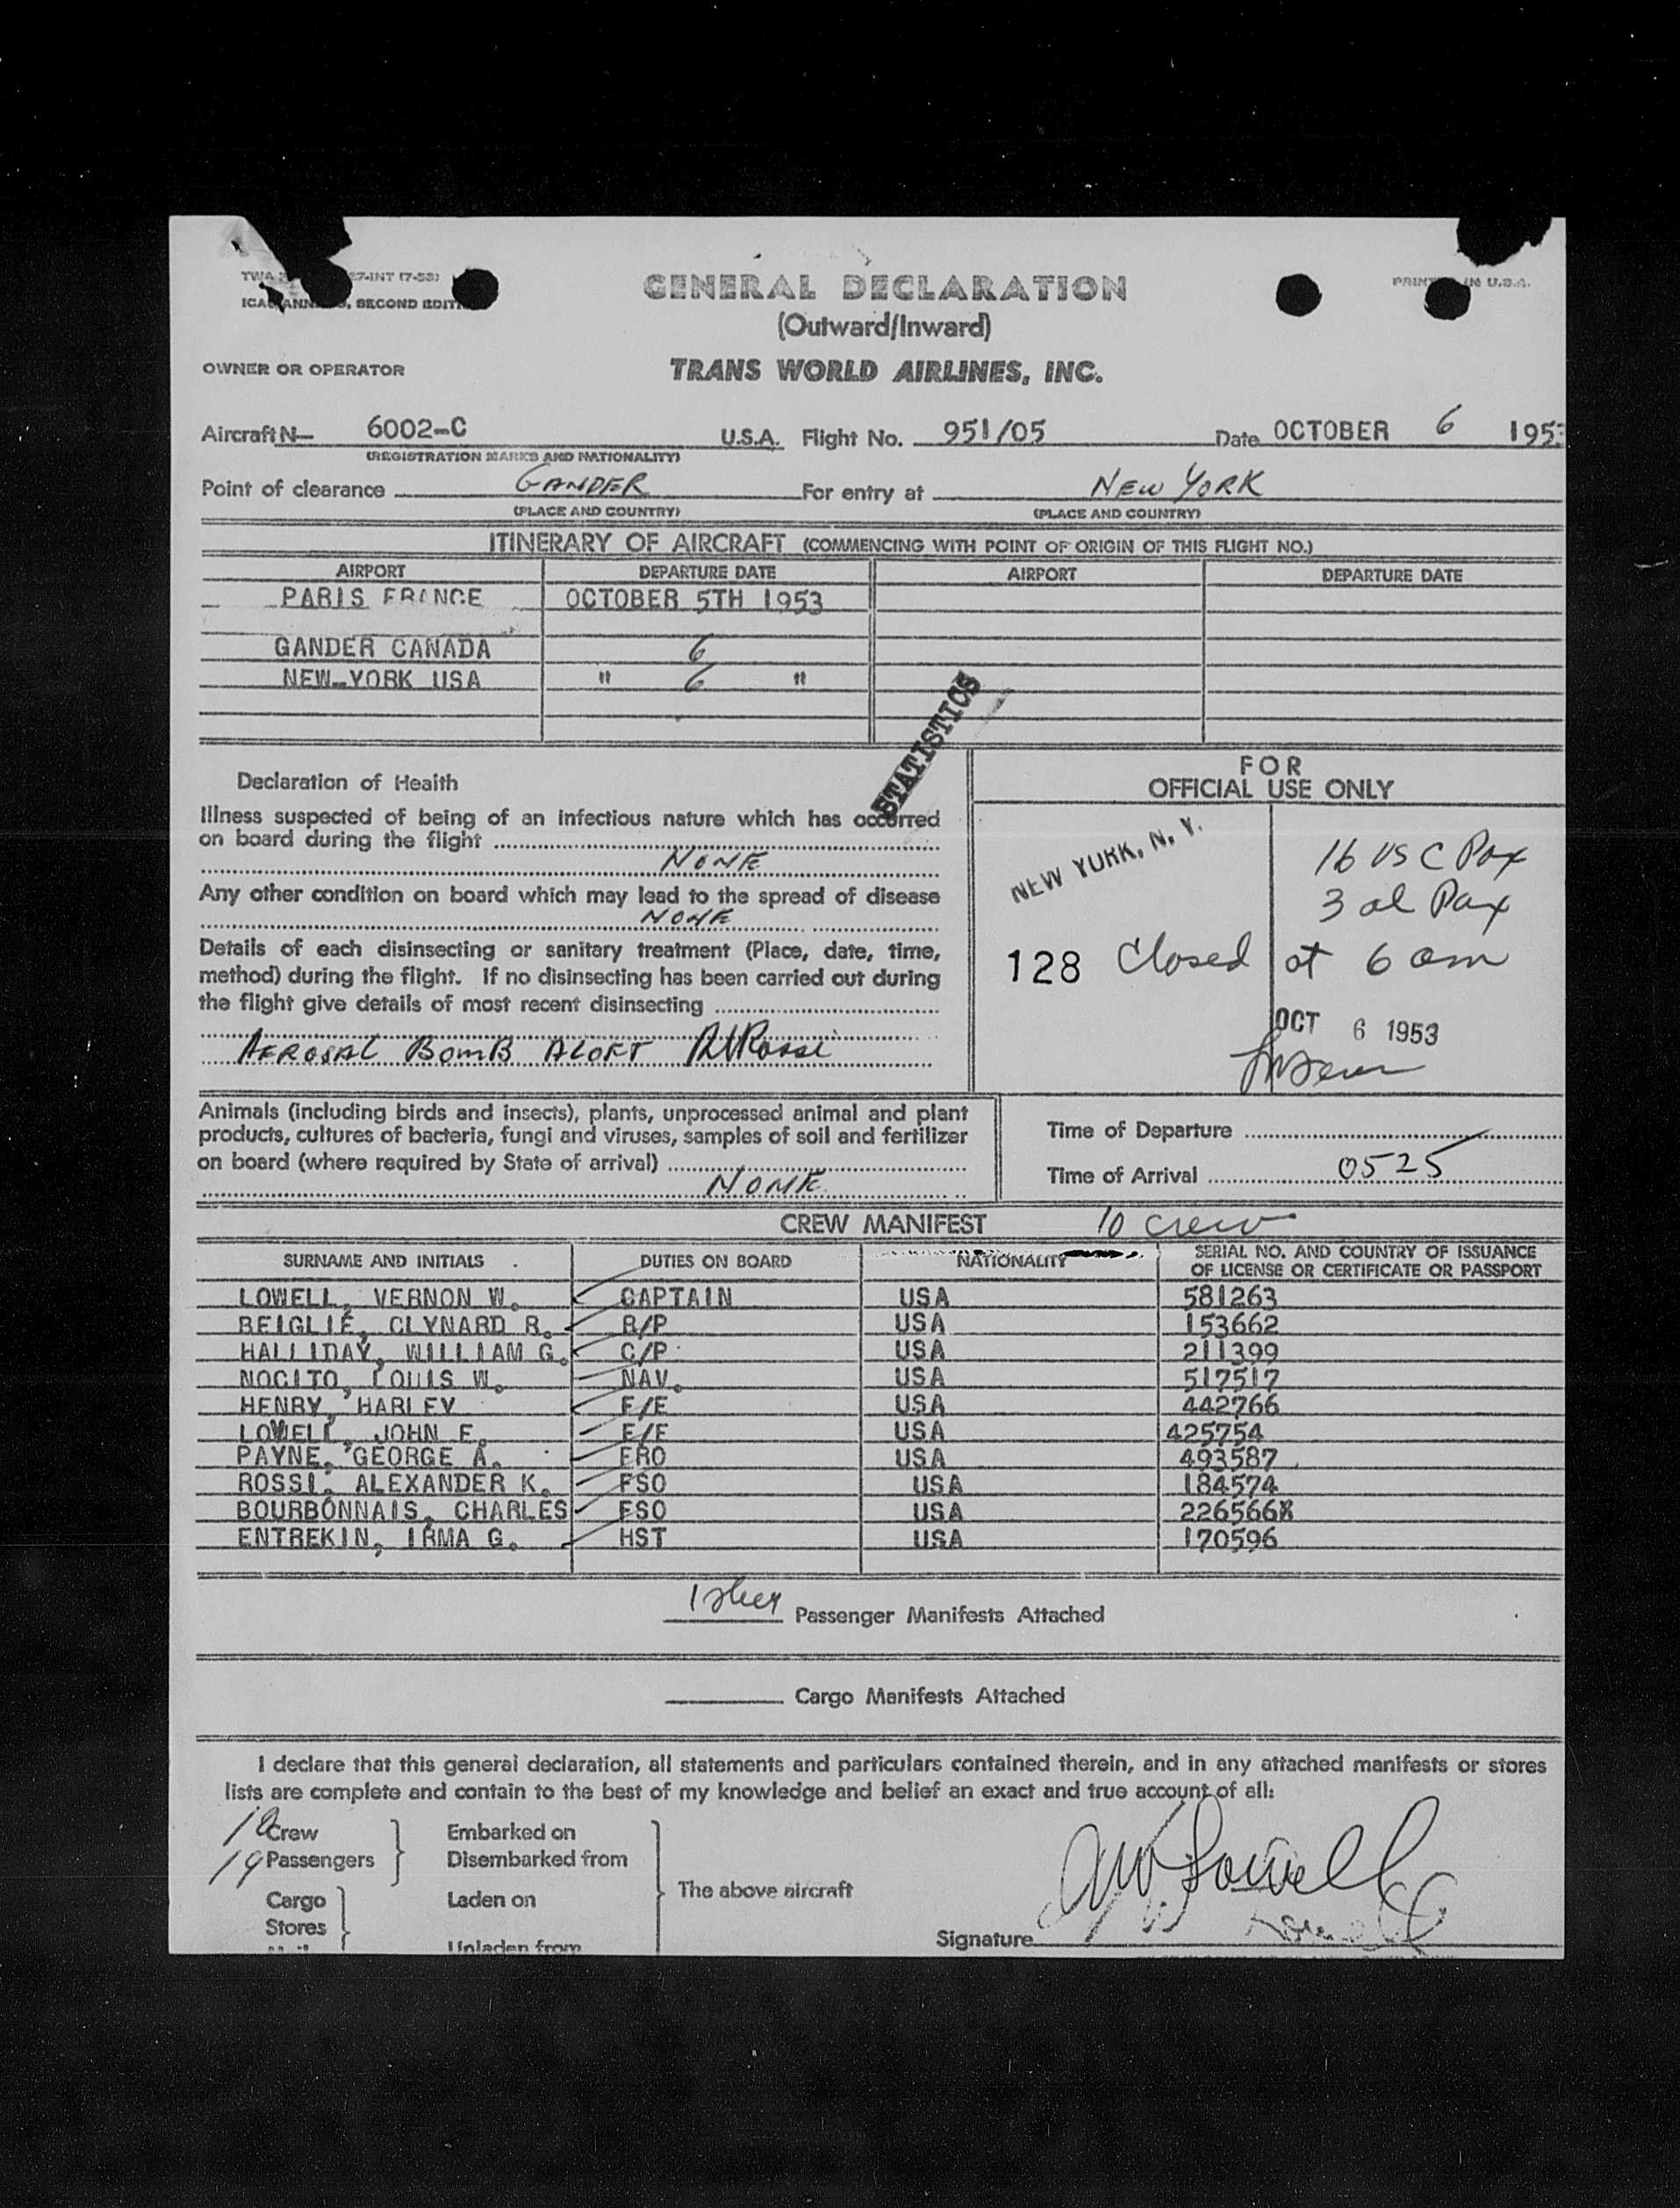 GENERAL DECLARATION
(Outward/Inward)
SECOND EDIT
OWNER OR OPERATOR
TRANS WORLD AIRLINES, INC.
Aircraft N— 6002-C U.S.A. Flight No. 951/05 Date OCTOBER 6 195
(REGISTRATION MARKS AND NATIONALITY)
Point of clearance GANDER For entry at NEW YORK
(PLACE AND COUNTRY) (PLACE AND COUNTRY)
ITINERARY OF AIRCRAFT (COMMENCING WITH POINT OF ORIGIN OF THIS FLIGHT NO.)
AIRPORT DEPARTURE DATE AIRPORT DEPARTURE DATE
PARIS FRANCE OCTOBER 5TH 1953
GANDER CANADA 6
NEW YORK USA " 6 "
STATISTICS
Declaration of Health
Illness suspected of being of an infectious nature which has occurred
on board during the flight
NONE
Any other condition on board which may lead to the spread of disease
NONE
Details of each disinsecting or sanitary treatment (Place, date, time,
method) during the flight. If no disinsecting has been carried out during
the flight give details of most recent disinsecting
AEROSAL BOMB ALOFT
FOR
OFFICIAL USE ONLY
NEW YORK, N. Y.
16 US C Pax
3 al Pax
128 Closed at 6 am
OCT 6 1953
Animals (including birds and insects), plants, unprocessed animal and plant
products, cultures of bacteria, fungi and viruses, samples of soil and fertilizer
on board (where required by State of arrival)
NONE
Time of Departure
Time of Arrival 0525
CREW MANIFEST 10 crew
SURNAME AND INITIALS DUTIES ON BOARD NATIONALITY SERIAL NO. AND COUNTRY OF ISSUANCE
OF LICENSE OR CERTIFICATE OR PASSPORT
LOWELL, VERNON W. CAPTAIN USA 581263
BEIGLIE, CLYNARD R. R/P USA 153662
HALLIDAY, WILLIAM G. C/P USA 211399
NOCITO, LOUIS W. NAV. USA 517517
HENRY, HARLEY F/E USA 442766
LOWELL, JOHN E. F/E USA 425754
PAYNE, GEORGE A. FRO USA 493587
ROSSI, ALEXANDER K. FSO USA 184574
BOURBONNAIS, CHARLES FSO USA 226566
ENTREKIN, IRMA G. HST USA 170596
Passenger Manifests Attached
Cargo Manifests Attached
I declare that this general declaration, all statements and particulars contained therein, and in any attached manifests or stores
lists are complete and contain to the best of my knowledge and belief an exact and true account of all:
10 Crew Embarked on
19 Passengers Disembarked from
The above aircraft
Cargo Laden on
Stores
Signature
Unladen from